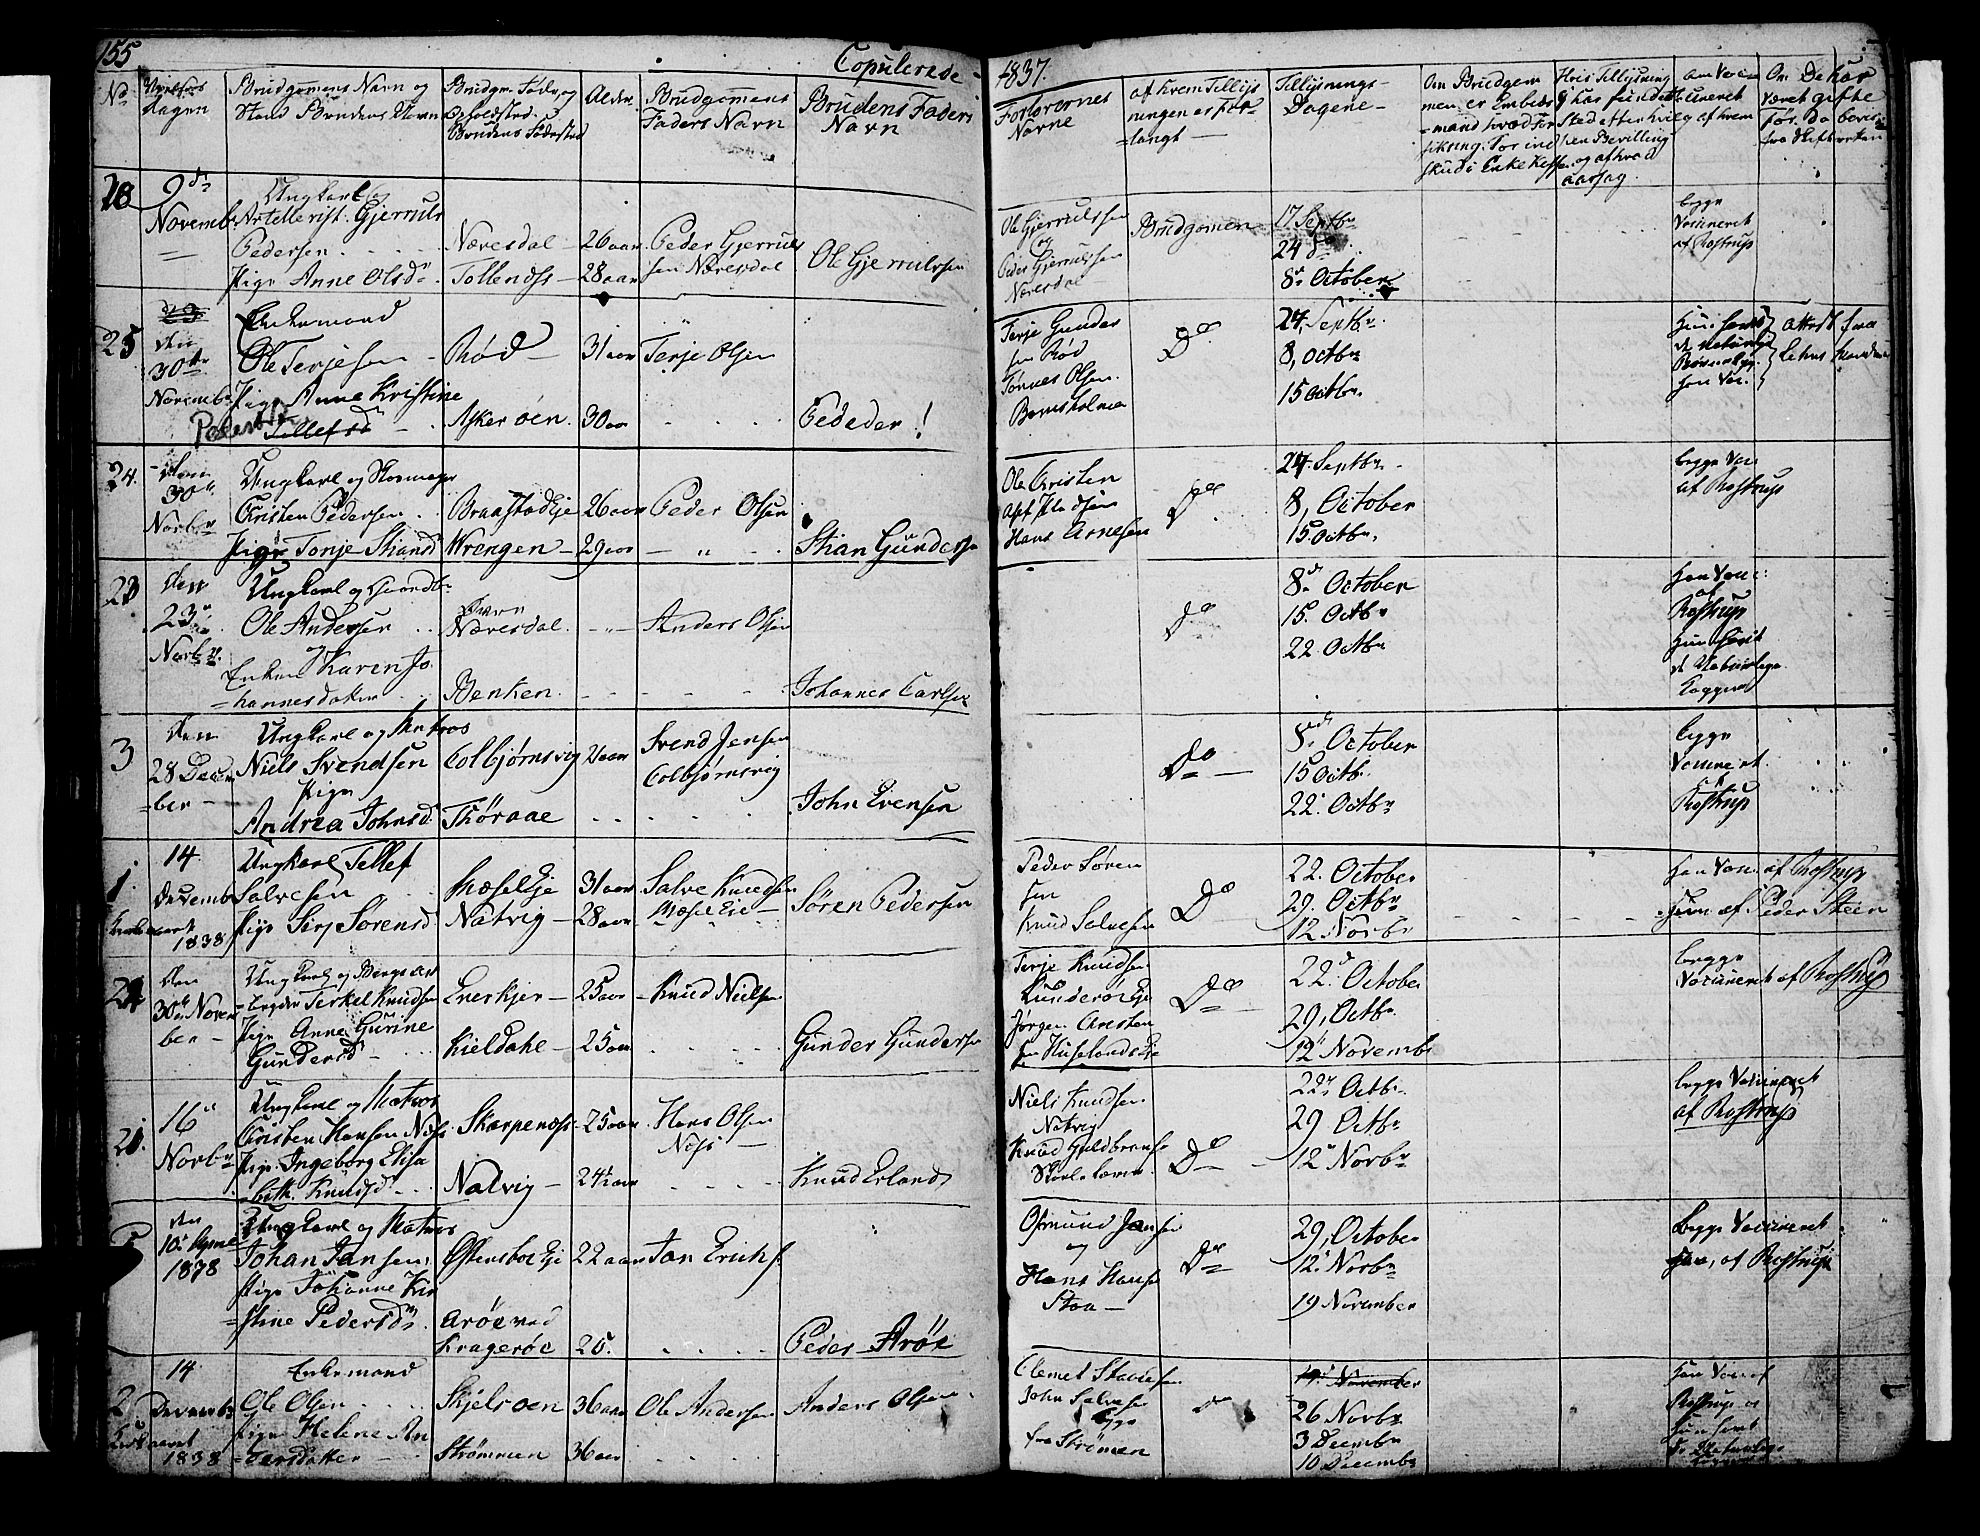 155
Copulerede
1837.
No
dagen
Brudgomens Navn og
Stand Brudens Navn
Brudgm. Føde, og
Opholdsted.
Brudens Fødested
Alder
Brudgomens
Faders Navn
Brudens Faders
Navn
Forlovernes
Navne
af hvem Tillys
ningen er for-
langt
Tillysnings-
Dagene
Om Brudgom
men er Embeds
mand hvad For
sikring for ind
skud i Enke Kassen
Hvis Tillysning
har fundet
Sted efter hvilken
Bevilling
og af hvad
aarsag.
om Vaccineret
af hvem
Om De har
været gifte
før. Da bevis
fra Skifteretten
28
9de
Novembr
Ungkarl og
Artillerist. Gjerruls
Pedersen
Pige Anne Olsdr
Næresdal
Tollendss
26 aar
28 aar
Peder Gjerruls
sen Næresdal
Ole Gjerrulsen
Ole Gjerrulssen
og
Peder Gjerrulssen
Næresdal
Brudgomen
17 Septbr
24 do
8de October
begge
Vaccineret
af Rostrup
25
den
30te
Novembr
Enkemand
Ole Terjesen
Pige Anne Kristine
Pedersdtr
Tellefsd
Rød
Askerøen
31 aar
30 aar
Terje Olsen
Pededer!
Terje Gunder
sen Rød
Tønnes Olsen
Bornsholmen
Do
24. Septbr.
8, octbr
15 octbr.
24.
den
30te
Novbr
Ungkarl og Skomager
Christen Pedersen
Pige Tonje Stiansd
Braastad Eje
Wrengen
26 aar
29 aar
Peder Olsen
Stian Gunderse
Ole Cristen
Hans Arnesen
Do
24. Septbr
8, October
15 Octbr.
begge Vac
af Rostrup
23
den
23de
Novbr.
Ungkarl og
Ole Andersen
og
Enken Karen Jo
hannesdatter
Næresdal
Benken
Anders Olsen
Johannes Carlsen
Do
8de October
15. Octbr
22. Octbr
han Vacc:
af
Rostrup
hun havt
de Naturlige
Kopper
3
den
28 Decem
ber
Ungkarl og Matros
Niels Svendsen
Pige
Andrea Johnsd.
Colbjørnsvig
Thøraae
Svend Jensen
Colbjørnsvig
John Evensen
Do
8de October
15 Octb.
22. Octbr
begge
Vaccineret
af
Rostrup
1.
14
December
Kirkeaaret
1838
Ungkarl Tellef
Salvesen
Pige Siri Sørensd
Mæsel Eje
Natvig
31 aar
28 aar
Salve Knudsen
Mæsel Eie
Søren Pedersen
Peder Søren
sen
Knud Salvesen
Do
22. October
29. Octbr
12 Novbr
han Vacc. af Rostrup
hun af Peder Steen
den
30te Novem
ber
Ungkarl og Bergs ar
beyder Terkel Knudsen
Pige Anne Gurine
Gundersd
Enerkjer
Kieldahl
25 aar
25 aar
Knud Nielsen
Gunder Gunderse
Terje Knudsen
Lunderøe Eje
Jørgen Cristen
sen Huselands Eje
Do
22de October
29, Octbr.
12te Novembr
begge
Vaccineret af Rostrup
16de
Novbr
Ungkarl og Matros
Cristen Hansen Næss
Pige Ingeborg Elisa
beth Knudsd
Skarpenæss
Natvig
25 aar
24½ aar
Hans Olsen
Næss
Knud Erlands
Niels Knudsen
Natvig
Knud Guldbranse
Do
22de Octbr.
29 Octbr
12te Novbr
begge Vaccineret
af Rostrup
den
10de
1838
Ungkarl og Matros
Johan Jansen
Pige Johanne Kir
stine Pedersdr
Østensboe Eje
Arøe ved
Kragerøe
22 aar
20.
Jan Erichs.
Peder Arøe
Osmund Jansen
og
Hans Hansen
Staa
Do
29, October
12te Novbr
19 November
begge Vaccineret
af Rostrup
2
14
December
Kirkeaaret
1838
Enkemand
Ole Olsen
Pige Helene An
dersdatter
Skjelsøen
Strømmen
36 aar
36 aar
Ole Andersen
Anders Olsen
Clemet
John Salvesen
begge
fra Strømen
Do
19de November
26 Novbr
3 Decembr
10 Decembr
han Vac af
Rostrup og
hun havt
de Naturlige